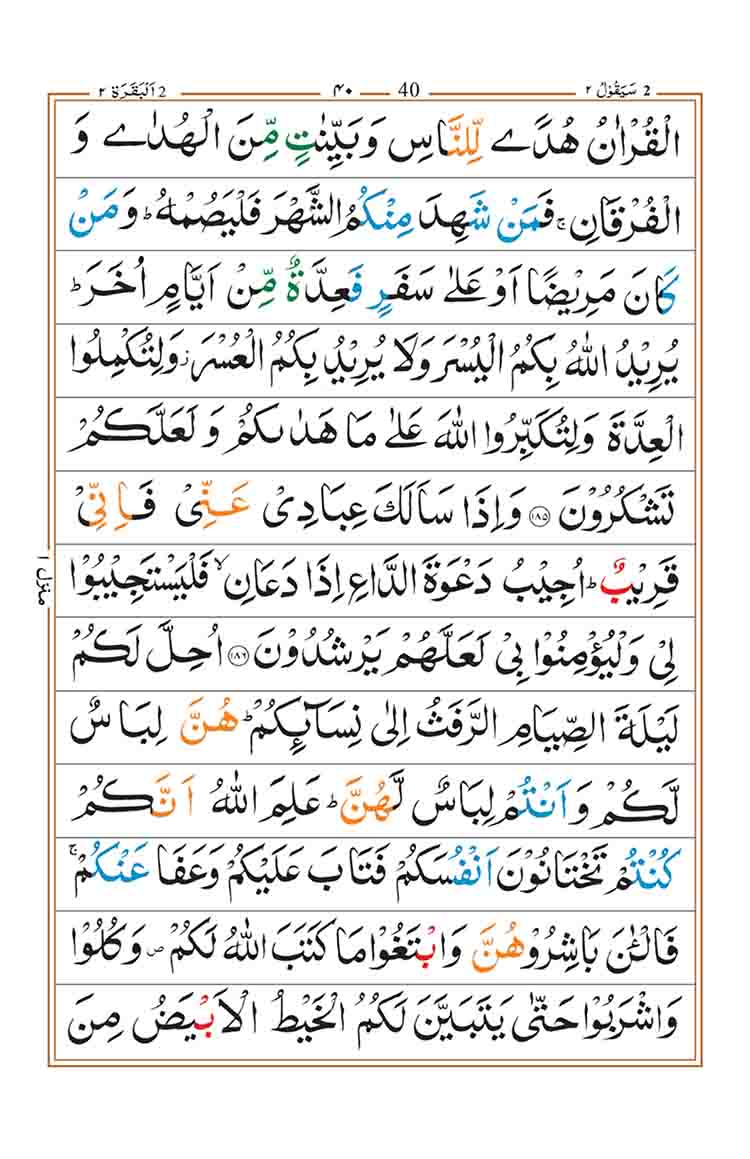 2 سَيَقُوْلُ ٢ 40 ۴۰ 2 اَلْبَقَرَة ٢
الْقُرْاٰنُ هُدًى لِّلنَّاسِ وَ بَيِّنٰتٍ مِّنَ الْهُدٰى وَ
الْفُرْقَانِ ۚ فَمَنْ شَهِدَ مِنْكُمُ الشَّهْرَ فَلْيَصُمْهُ ؕ وَ مَنْ
كَانَ مَرِيْضًا اَوْ عَلٰى سَفَرٍ فَعِدَّةٌ مِّنْ اَيَّامٍ اُخَرَ ؕ
يُرِيْدُ اللّٰهُ بِكُمُ الْيُسْرَ وَلَا يُرِيْدُ بِكُمُ الْعُسْرَ ؗ وَلِتُكْمِلُوا
الْعِدَّةَ وَلِتُكَبِّرُوا اللّٰهَ عَلٰى مَا هَدٰىكُمْ وَ لَعَلَّكُمْ
تَشْكُرُوْنَ ﴿۱۸۵﴾ وَاِذَا سَاَلَكَ عِبَادِىْ عَنِّىْ فَاِنِّىْ
قَرِيْبٌ ؕ اُجِيْبُ دَعْوَةَ الدَّاعِ اِذَا دَعَانِ ۙ فَلْيَسْتَجِيْبُوْا
لِىْ وَلْيُؤْمِنُوْا بِىْ لَعَلَّهُمْ يَرْشُدُوْنَ ﴿۱۸۶﴾ اُحِلَّ لَكُمْ
لَيْلَةَ الصِّيَامِ الرَّفَثُ اِلٰى نِسَآئِكُمْ ؕ هُنَّ لِبَاسٌ
لَّكُمْ وَ اَنْتُمْ لِبَاسٌ لَّهُنَّ ؕ عَلِمَ اللّٰهُ اَنَّكُمْ
كُنْتُمْ تَخْتَانُوْنَ اَنْفُسَكُمْ فَتَابَ عَلَيْكُمْ وَعَفَا عَنْكُمْ ۚ
فَالْـٰٔنَ بَاشِرُوْهُنَّ وَابْتَغُوْا مَا كَتَبَ اللّٰهُ لَكُمْ ص وَكُلُوْا
وَاشْرَبُوْا حَتّٰى يَتَبَيَّنَ لَكُمُ الْخَيْطُ الْاَبْيَضُ مِنَ
منزل ١